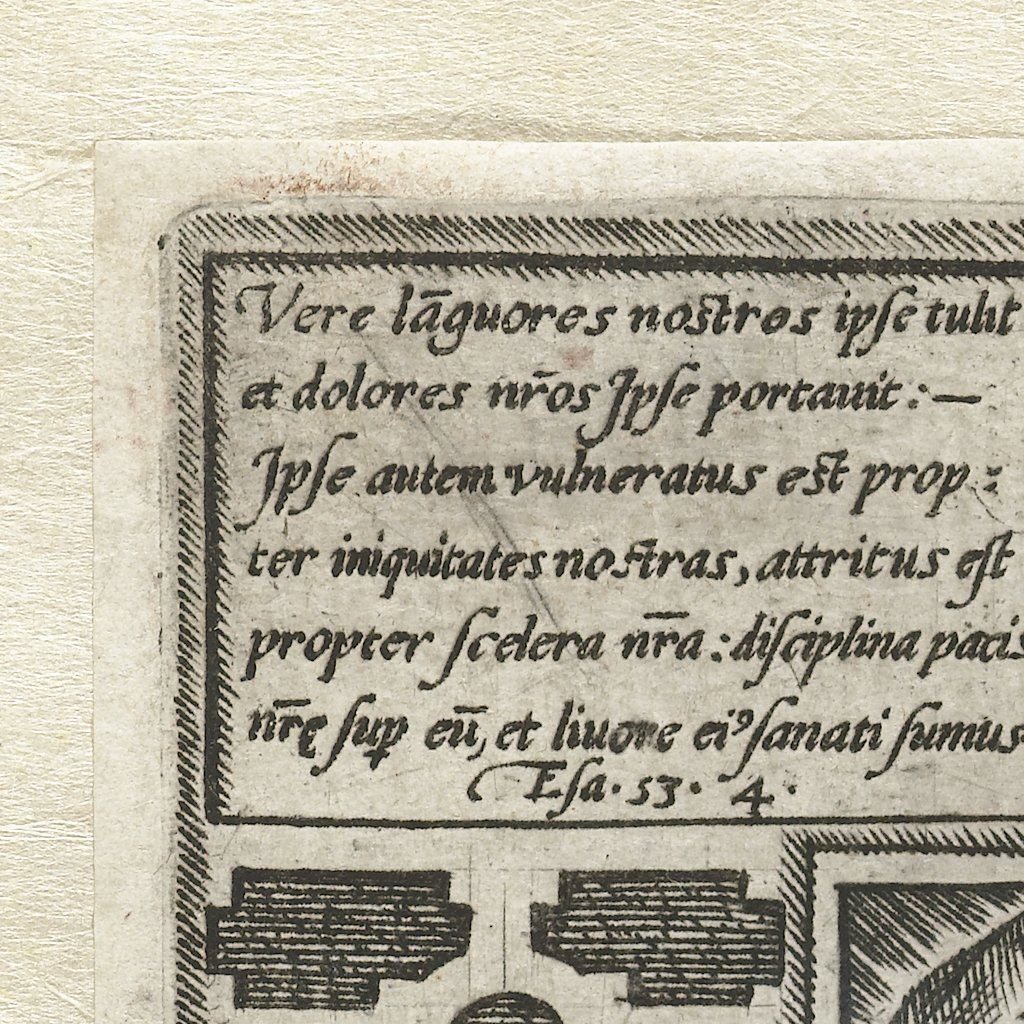 Vere lāguores nostros ipse tulit
et dolores nr̄os Ipse portauit : —
Ipse autem vulneratus est prop :
ter iniquitates nostras, attritus est
propter scelera nr̄a : disciplina pacis
nr̄ę sup eū, et liuore eiꝰ sanati sumus
Esa · 53 · 4 ·